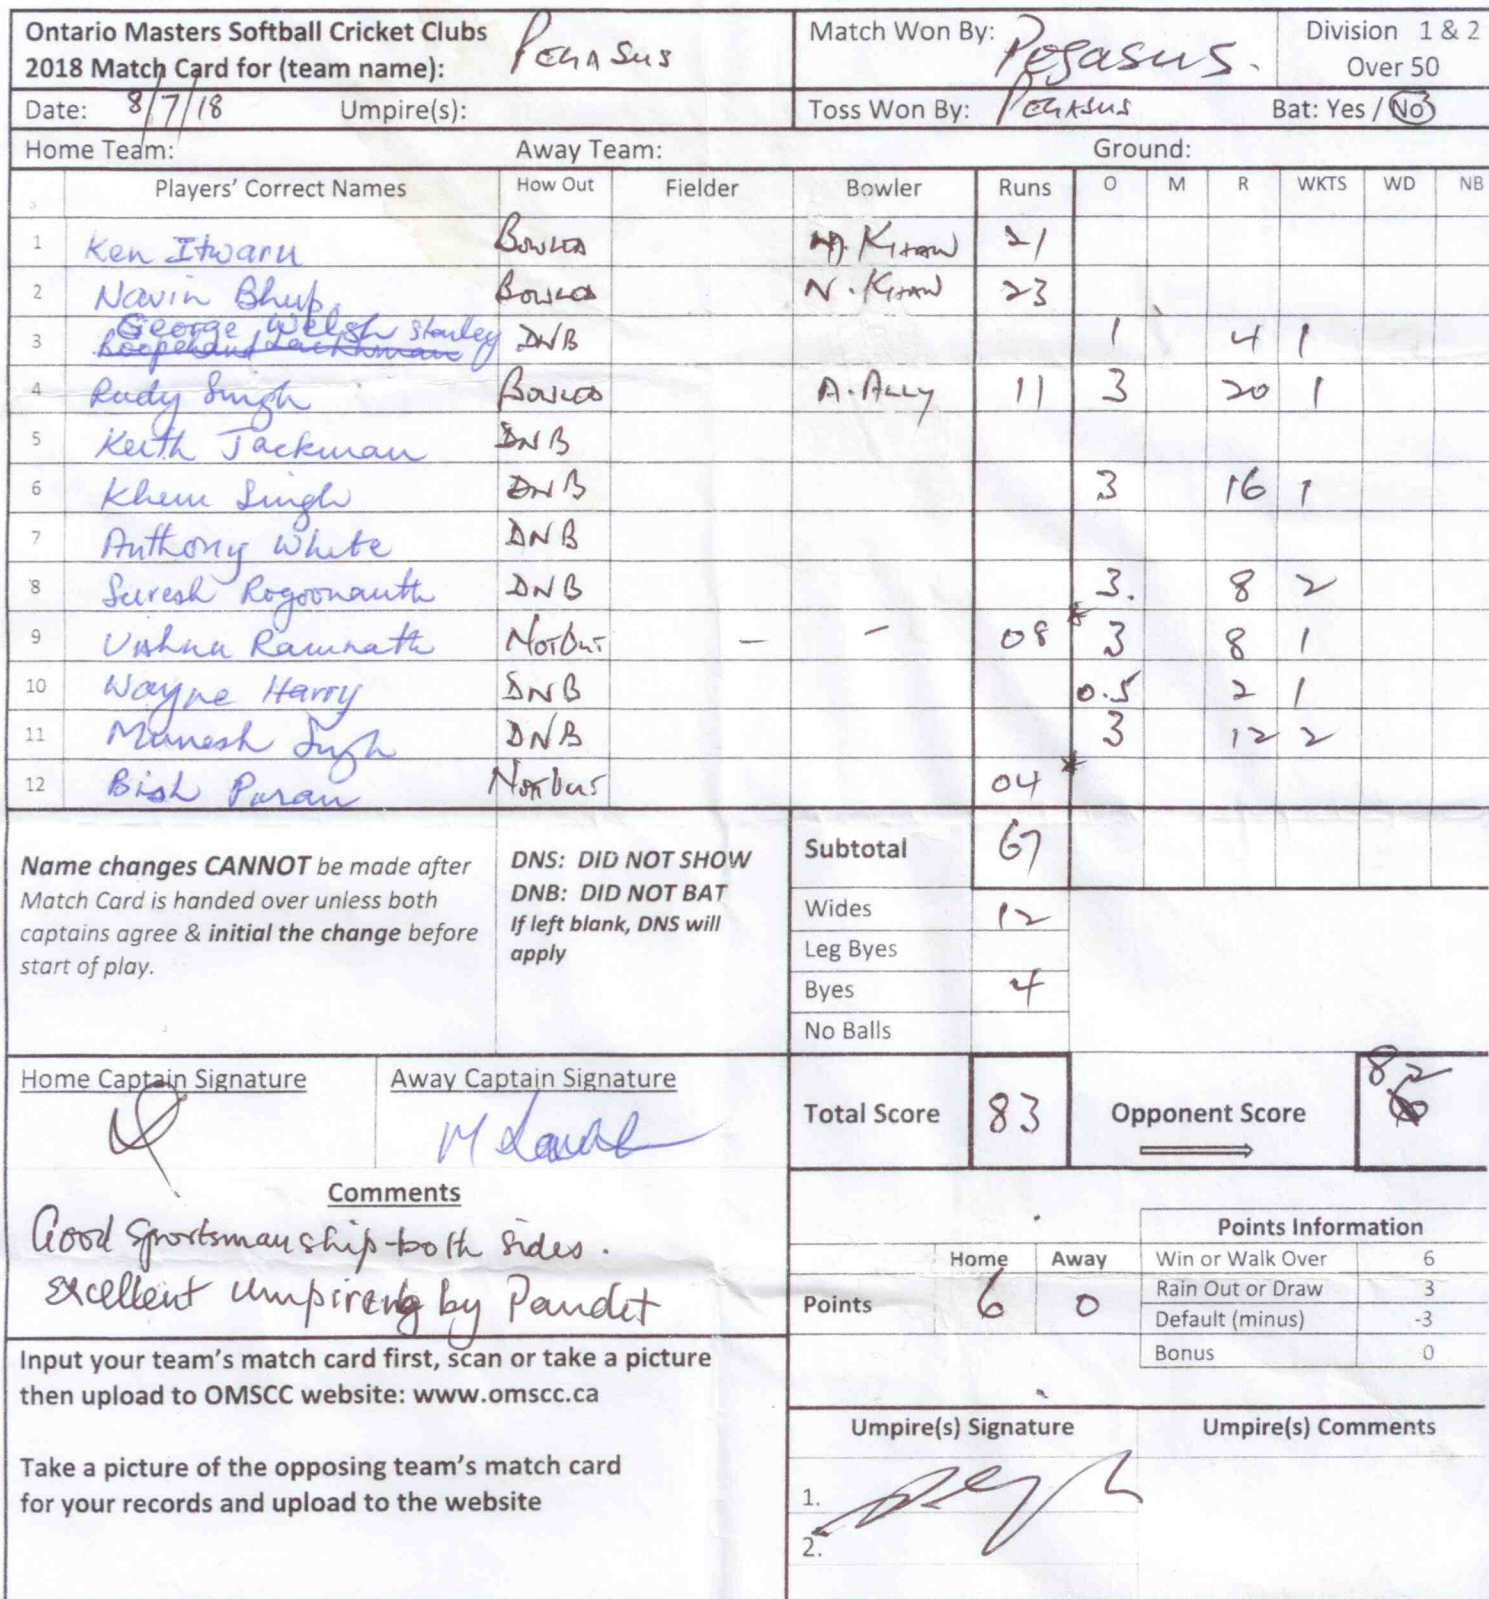 Ontario Masters Softball Cricket Clubs
2018 Match Card for (team name): PEGASUS
Match Won By: Pegasus.
Division 1 & 2
Over 50
Date: 8/7/18 Umpire(s):
Toss Won By: PEGASUS Bat: Yes / No
Home Team: Away Team: Ground:
Players' Correct Names How Out Fielder Bowler Runs O M R WKTS WD NB
1 Ken Itwaru BOWLED KHAN 21
2 Navin Bhup BOWLED N. KHAN 23
George Welsh Stanley
3 DNB 1 4 1
4 Rudy Singh BOWLED A. ALLY 11 3 20 1
5 Keith Jackman DNB
6 Khem Singh DNB 3 16 1
7 Anthony White DNB
8 Suresh Rogoonauth DNB 3. 8 2
9 Vishnu Ramnath NOT OUT – – 08* 3 8 1
10 Wayne Harry DNB 0.5 2 1
11 Munesh Singh DNB 3 12 2
12 Bish Puran NOT OUT 04*
Name changes CANNOT be made after
Match Card is handed over unless both
captains agree & initial the change before
start of play.
DNS: DID NOT SHOW
DNB: DID NOT BAT
If left blank, DNS will
apply
Subtotal 67
Wides 12
Leg Byes
Byes 4
No Balls
Home Captain Signature
Away Captain Signature
Total Score 83 Opponent Score 82
Comments
Good Sportsmanship-both sides.
excellent umpireing by Pandit
Points Information
Home Away
Points 6 0
Win or Walk Over 6
Rain Out or Draw 3
Default (minus) -3
Bonus 0
Input your team's match card first, scan or take a picture
then upload to OMSCC website: www.omscc.ca
Take a picture of the opposing team's match card
for your records and upload to the website
Umpire(s) Signature Umpire(s) Comments
1.
2.